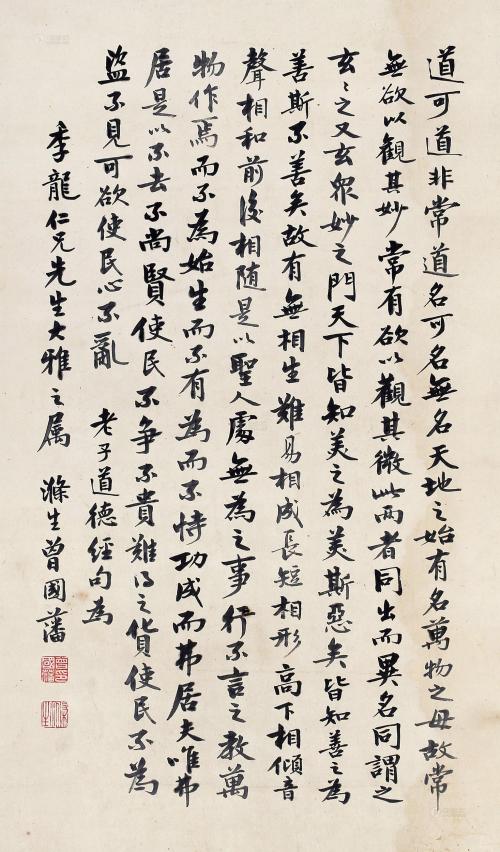 道可道非常道名可名無名天地之始有名萬物之母故常
無欲以觀其妙常有欲以觀其徼此兩者同出而異名同謂之
玄〻之又玄眾妙之門天下皆知美之為美斯惡矣皆知善之為
善斯不善矣故有無相生難易相成長短相形高下相傾音
聲相和前後相随是以聖人處無為之事行不言之教萬
物作焉而不為始生而不有為而不恃功成而弗居夫唯弗
居是以不去不尚賢使民不争不貴難得之貨使民不為
盜不見可欲使民心不亂 老子道德經句為
季龍仁兄先生大雅之属 滌生曾國藩